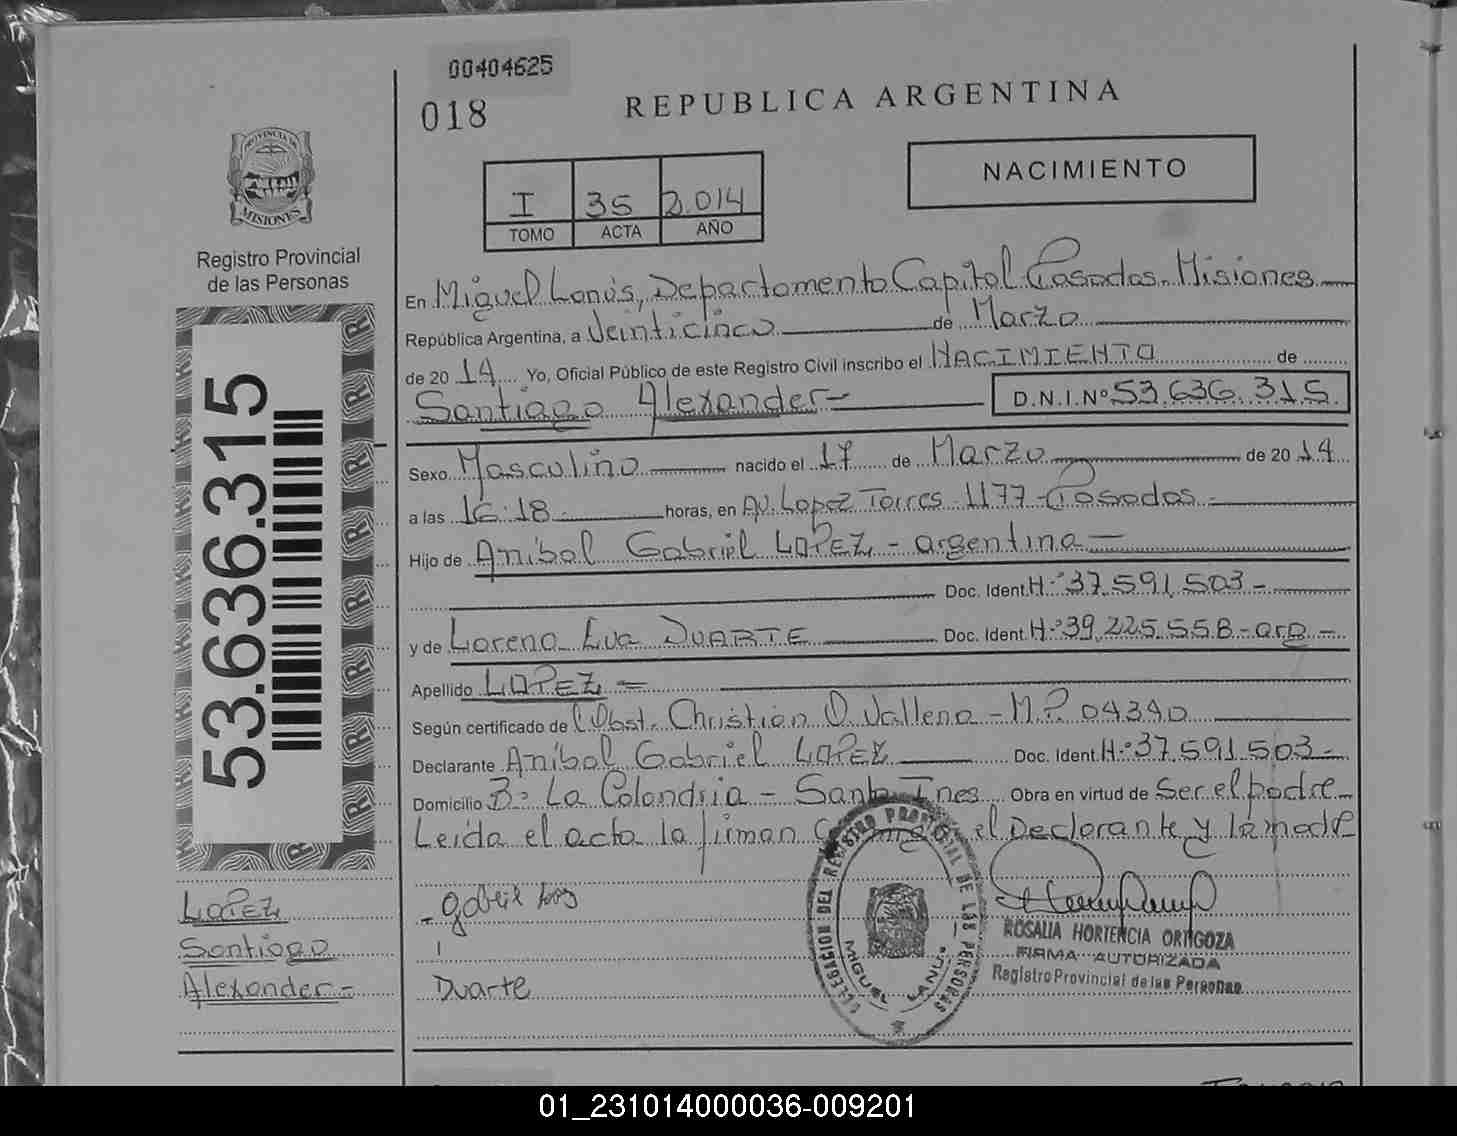 00404625
018
REPUBLICA ARGENTINA
PROVINCIA DE
MISIONES
Registro Provincial
de las Personas
NACIMIENTO
I 35 2.014
TOMO ACTA AÑO
En Miguel Lanús, Departamento Capital Posadas. Misiones
República Argentina, a Veinticinco de Marzo
de 20 14 Yo, Oficial Público de este Registro Civil inscribo el NACIMIENTO de
Santiago Alexander- D.N.I.Nº 53.636.315
Sexo Masculino nacido el 17 de Marzo de 20 14
a las 16:18 horas, en Av. Lopez Torres 1177-Posadas-
Hijo de Anibal Gabriel LOPEZ - argentina -
Doc. Ident. Nº 37.591.503-
y de Lorena Eva DUARTE Doc. Ident. Nº 39.225.558-arg-
Apellido LOPEZ =
Según certificado de Obst. Christian D. Vallena - M.P. 04340
Declarante Anibal Gabriel LOPEZ Doc. Ident. Nº 37.591.503-
Domicilio Bº La Calandria - Santa Ines Obra en virtud de Ser el padre
Leida el acta la firman el Declarante y la madre
53.636.315
LOPEZ
Santiago
Alexander-
Duarte
DELEGACION DEL REGISTRO PROVINCIAL DE LAS PERSONAS
MIGUEL LANUS
ROSALIA HORTENCIA ORTIGOZA
FIRMA AUTORIZADA
Registro Provincial de las Personas
01_231014000036-009201